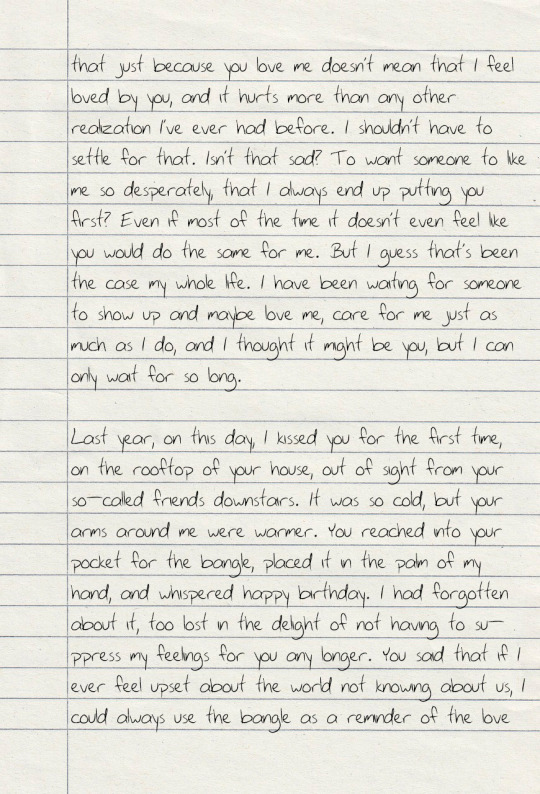 that just because you love me doesn't mean that I feel
loved by you, and it hurts more than any other
realization I've ever had before. I shouldn't have to
settle for that. Isn't that sad? To want someone to like
me so desperately, that I always end up putting you
first? Even if most of the time it doesn't even feel like
you would do the same for me. But I guess that's been
the case my whole life. I have been waiting for someone
to show up and maybe love me, care for me just as
much as I do, and I thought it might be you, but I can
only wait for so long.

Last year, on this day, I kissed you for the first time,
on the rooftop of your house, out of sight from your
so-called friends downstairs. It was so cold, but your
arms around me were warmer. You reached into your
pocket for the bangle, placed it in the palm of my
hand, and whispered happy birthday. I had forgotten
about it, too lost in the delight of not having to su-
ppress my feelings for you any longer. You said that if I
ever feel upset about the world not knowing about us, I
could always use the bangle as a reminder of the love